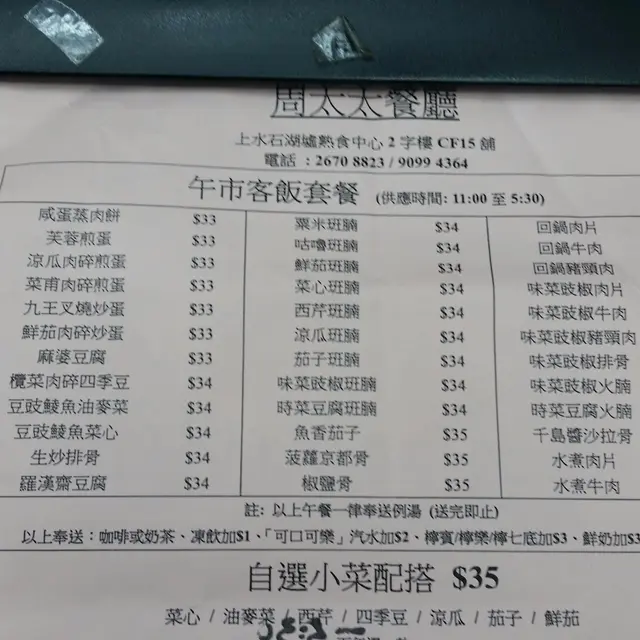 周太太餐廳
上水石湖墟熟食中心 2 字樓 CF15 舖
電話 : 2670 8823 / 9099 4364
午市客飯套餐 (供應時間: 11:00 至 5:30)
咸蛋蒸肉餅 $33 粟米班腩 $34 回鍋肉片
芙蓉煎蛋 $33 咕嚕班腩 $34 回鍋牛肉
涼瓜肉碎煎蛋 $33 鮮茄班腩 $34 回鍋豬頸肉
菜甫肉碎煎蛋 $33 菜心班腩 $34 味菜豉椒肉片
九王叉燒炒蛋 $33 西芹班腩 $34 味菜豉椒牛肉
鮮茄肉碎炒蛋 $33 涼瓜班腩 $34 味菜豉椒豬頸肉
麻婆豆腐 $33 茄子班腩 $34 味菜豉椒排骨
欖菜肉碎四季豆 $34 味菜豉椒班腩 $34 味菜豉椒火腩
豆豉鯪魚油麥菜 $34 時菜豆腐班腩 $34 時菜豆腐火腩
豆豉鯪魚菜心 $34 魚香茄子 $35 千島醬沙拉骨
生炒排骨 $34 菠蘿京都骨 $35 水煮肉片
羅漢齋豆腐 $34 椒鹽骨 $35 水煮牛肉
註: 以上午餐一律奉送例湯 (送完即止)
以上奉送：咖啡或奶茶、凍飲加$1、「可口可樂」汽水加$2、檸賓/檸樂/檸七底加$3、鮮奶加$3
自選小菜配搭 $35
菜心 / 油麥菜 / 西芹 / 四季豆 / 涼瓜 / 茄子 / 鮮茄